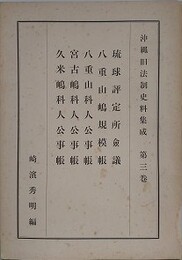 沖縄旧法制史料集成 第三巻
琉球評定所僉議
八重山嶋規模帳
八重山科人公事帳
宮古嶋科人公事帳
久米嶋科人公事帳
崎濱秀明編